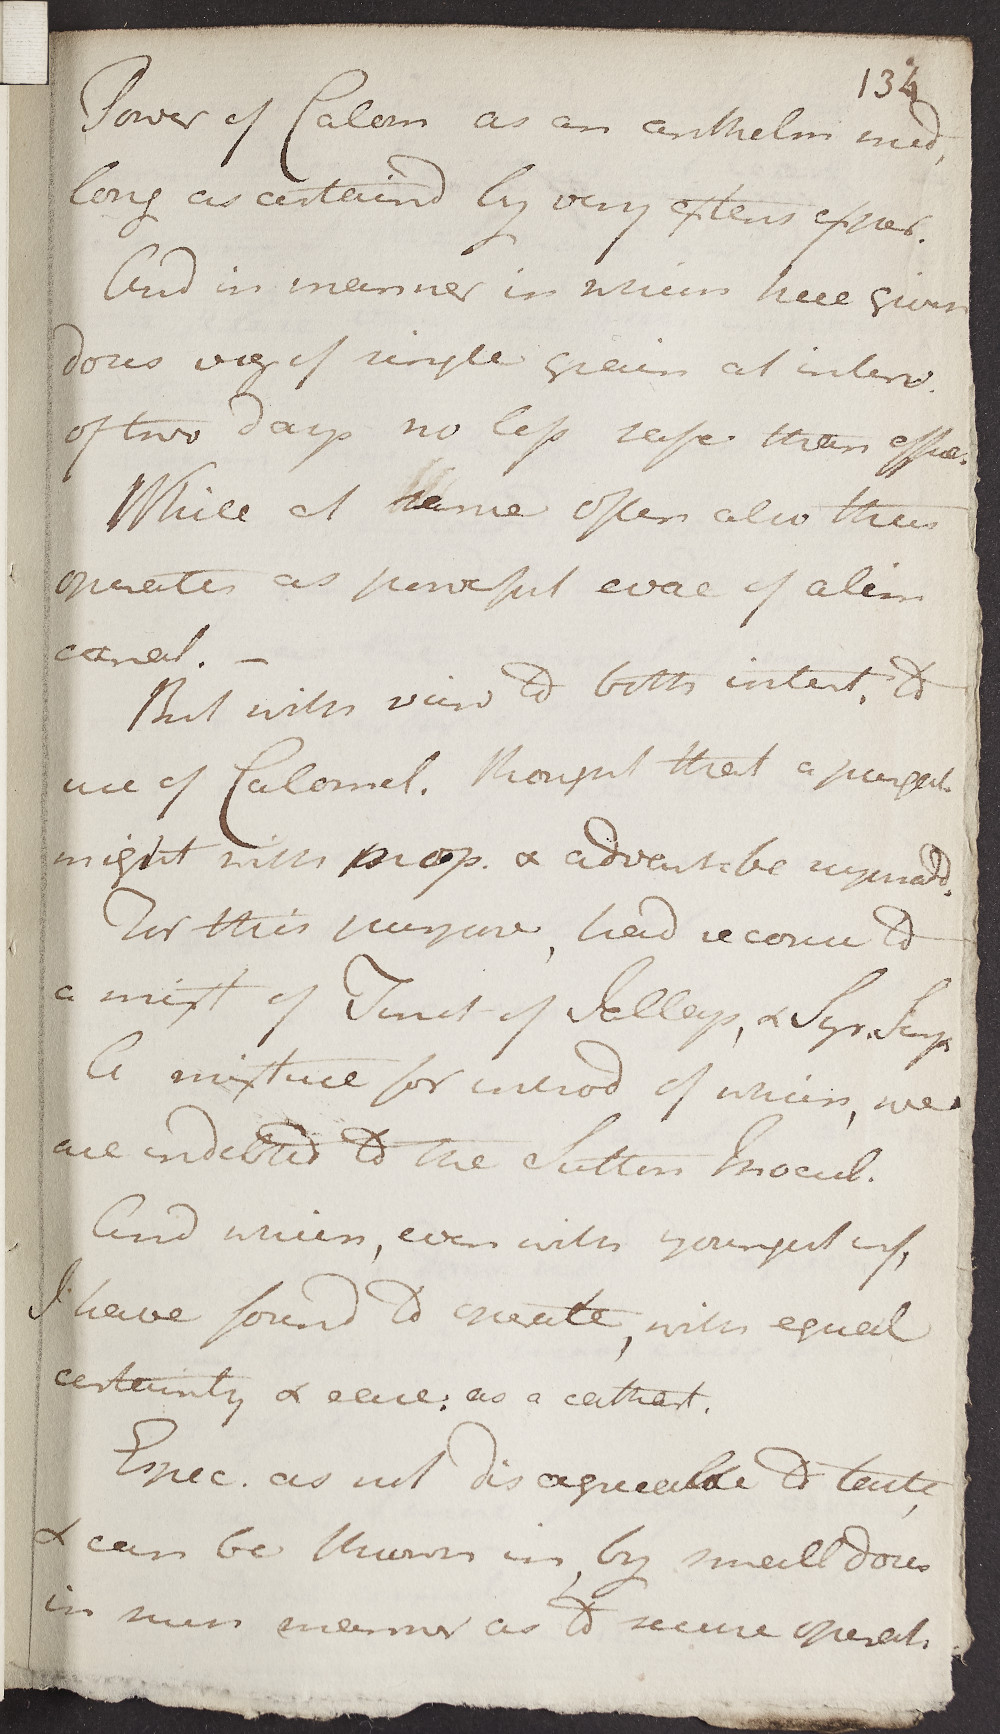 134
Power of Calom as an anthelm med,
long ascertaind by very extens exper.
And in manner in which here given
doses viz of single grain at interv.
of two days no less safe than effica.
While at same often also thus
operates as powerful evac of alim
canal. –
But with view to both intent, to
use of Calomel. thought that a purgat.
might with prop. & advant: be conjoind.
For this purpose, had recourse to
a mixt of Tinct of Jallap, & Syr. Simp
A mixture for introd of which, we
are indebted to the Sutton Inocul.
And which, even with youngest inf,
I have found to operate, with equal
certainty & ease: as a cathart.
Espec. as not disagreeable to taste,
& can be thrown in, by small doses
in such manner as to secure operat.